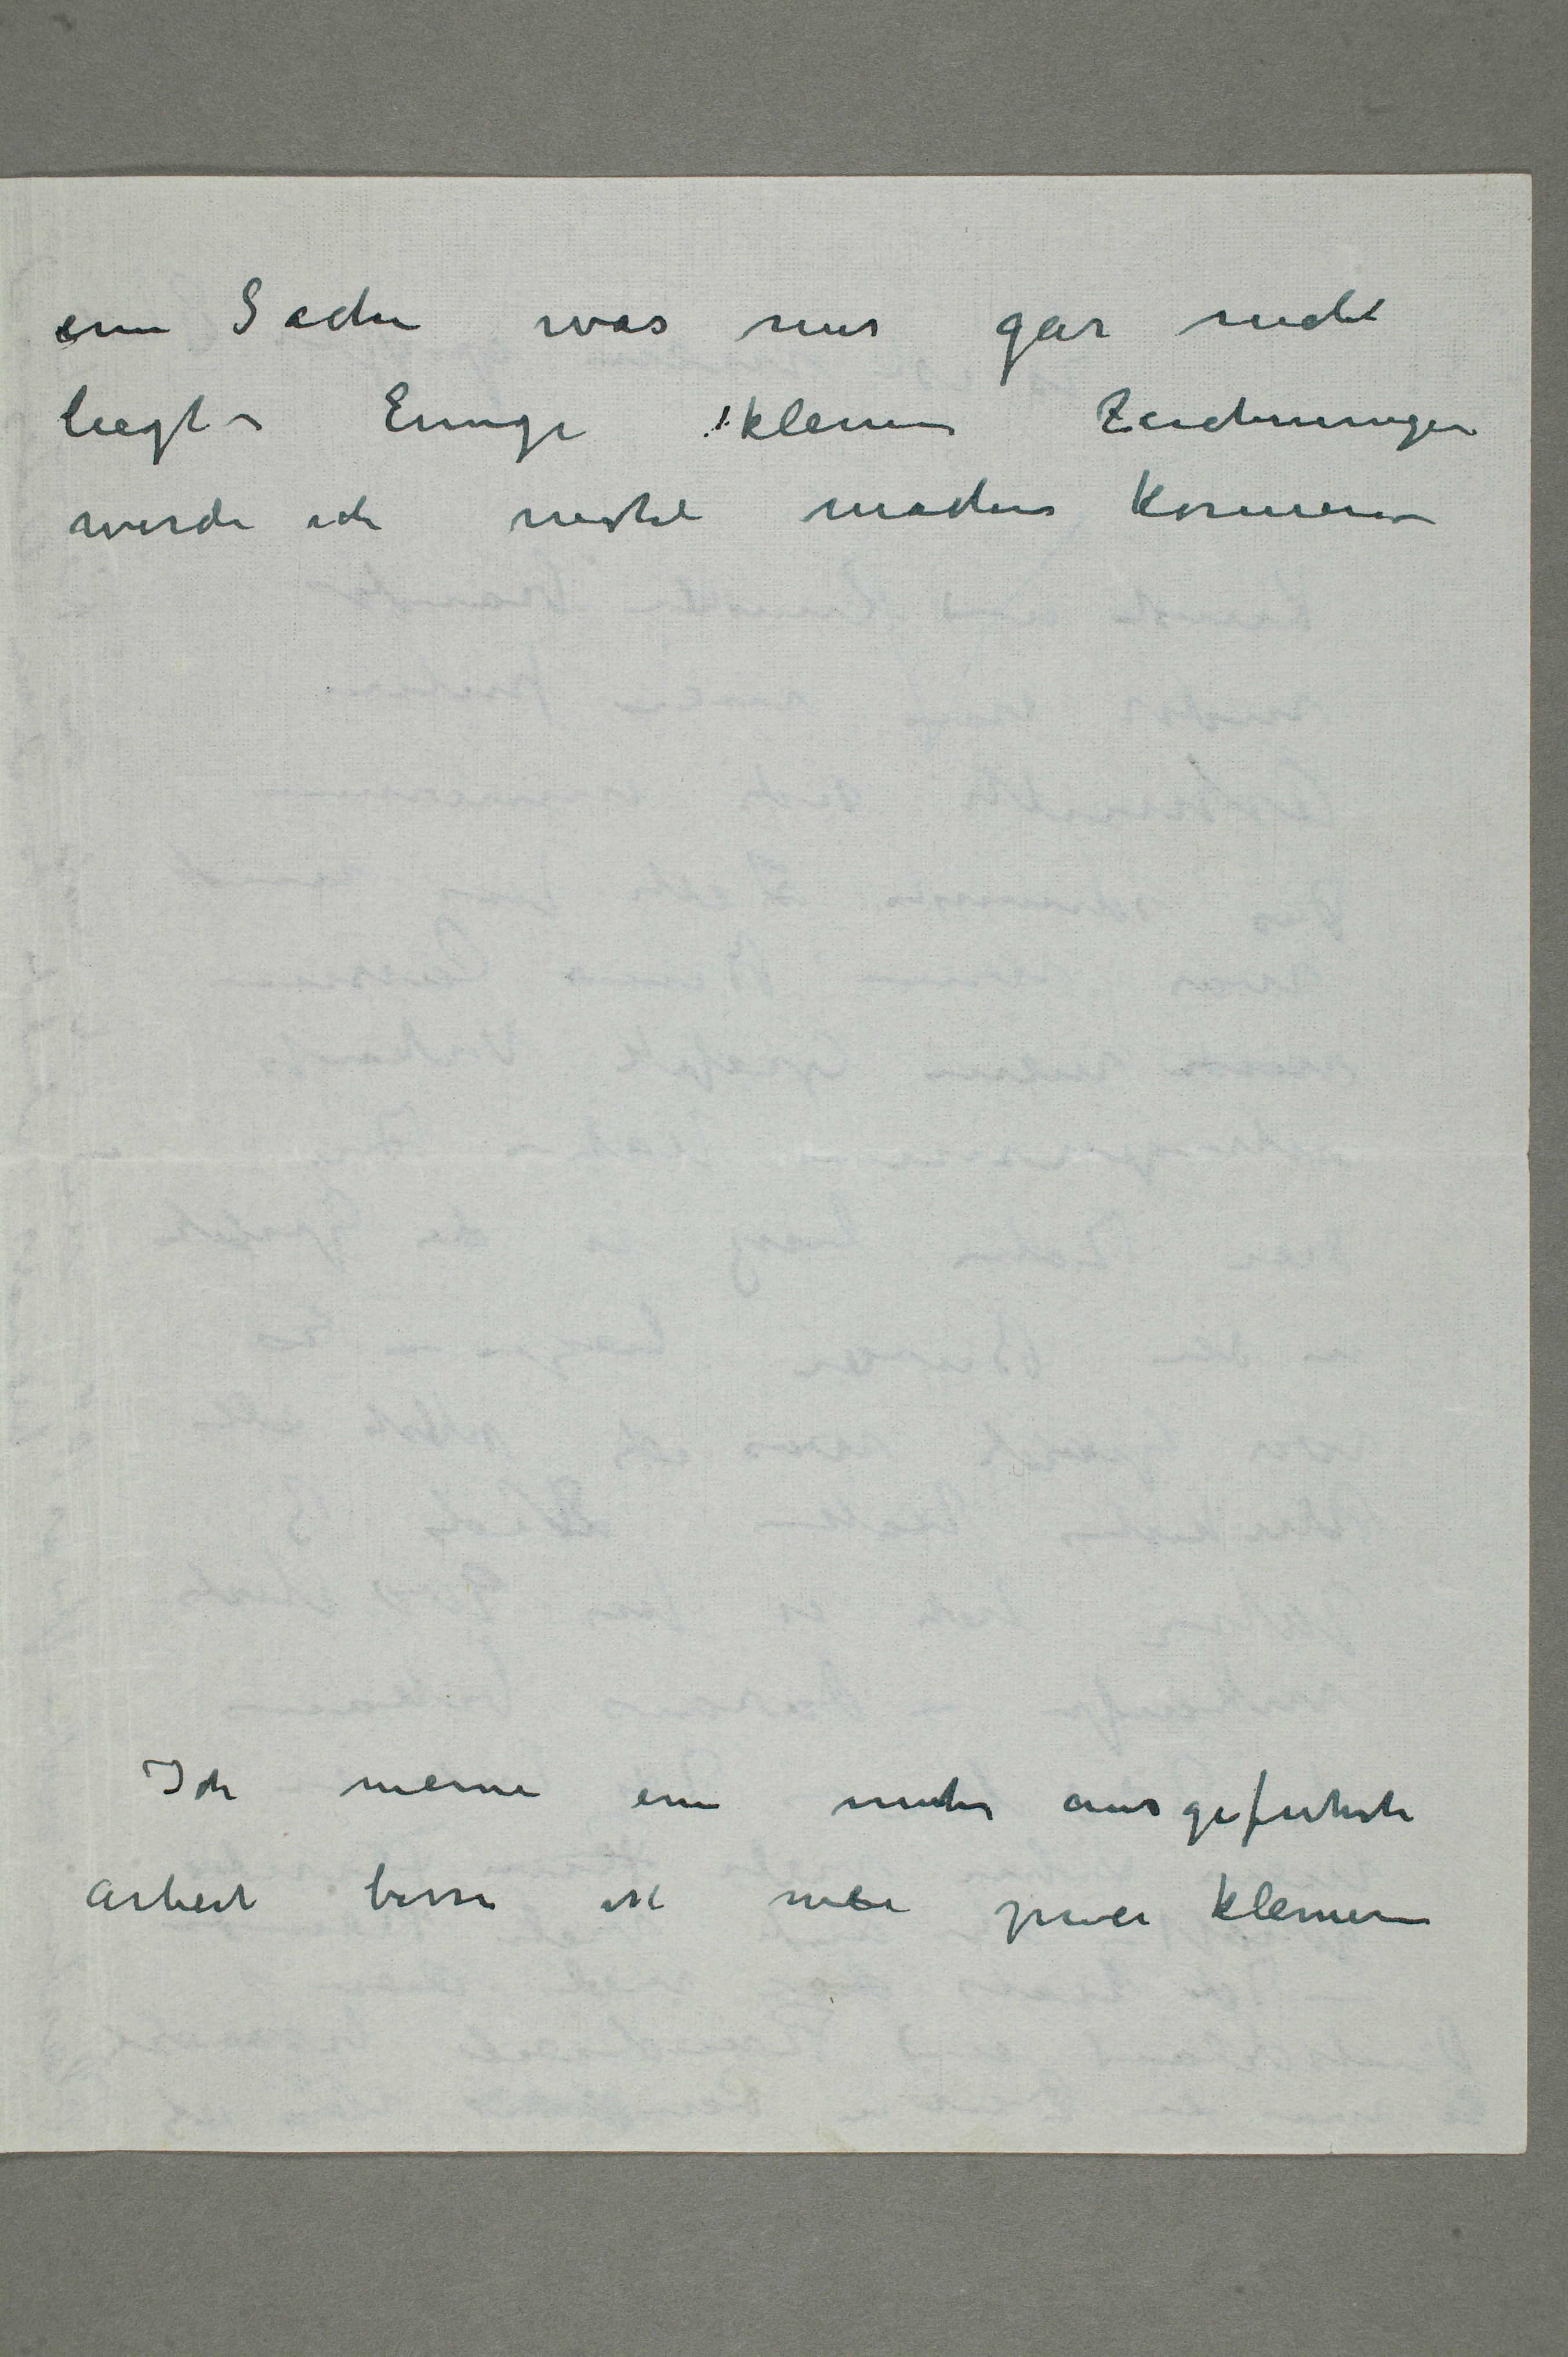 eine Sache was mir gar nicht
liegt – Einige kleine Zeichnungen
werde ich nicht machen können –
Ich meine eine mehr ausgefuhrte
Arbeit besser ist wie zwei kleinere